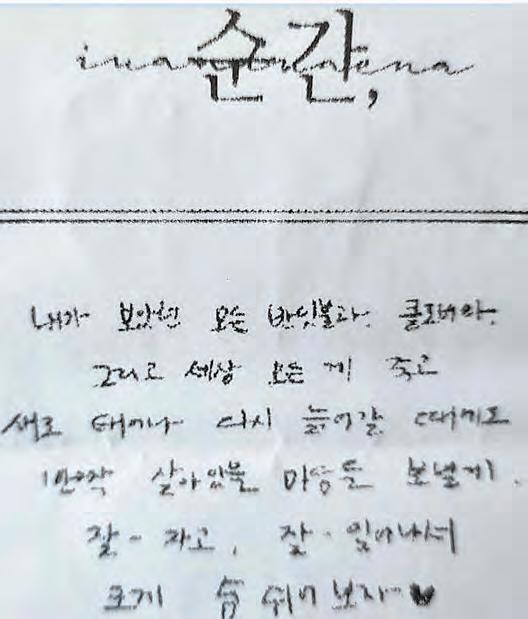 순간,
내가 보았던 모든 반딧불과. 클로버와.
그리고 세상 모든 게 죽고
새로 태어나 다시 늙어갈 때에도
반짝 살아있을 마음을 보낼게.
잘- 자고, 잘- 일어나서
크게 숨 쉬어 보자-♥